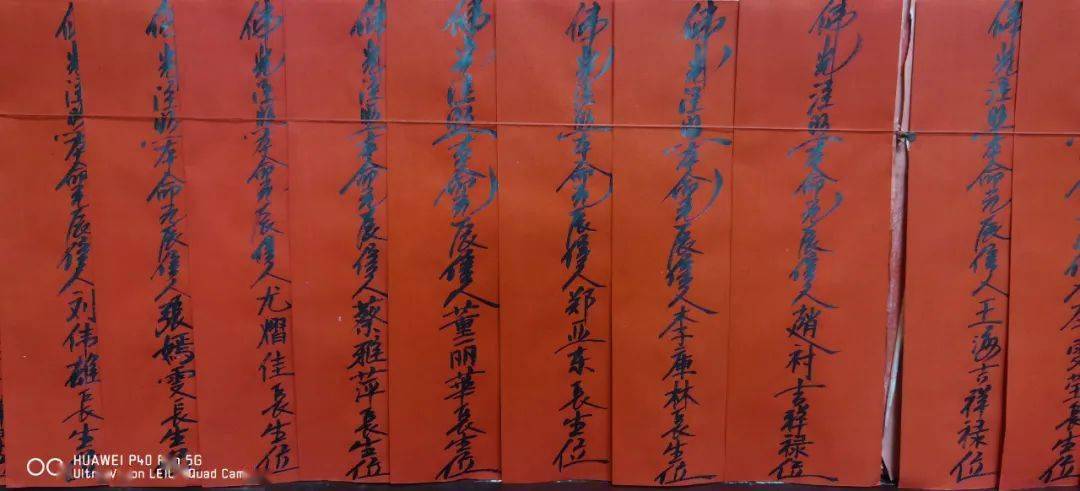 佛光注照本命元辰信人刘伟雄长生位
佛光注照本命元辰信人張嫣雯長生位
佛光注照本命元辰信人尤熠佳長生位
佛光注照本命元辰信人蔡雅萍長生位
佛光注照本命元辰信人董丽華長生位
佛光注照本命元辰信人郑亚东長生位
佛光注照本命元辰信人李庫林長生位
佛光注照本命元辰信人趙村吉祥禄位
佛光注照本命元辰信人王海吉祥禄位
長生位
HUAWEI P40 Pro 5G
Ultra Vision LEICA Quad Cam